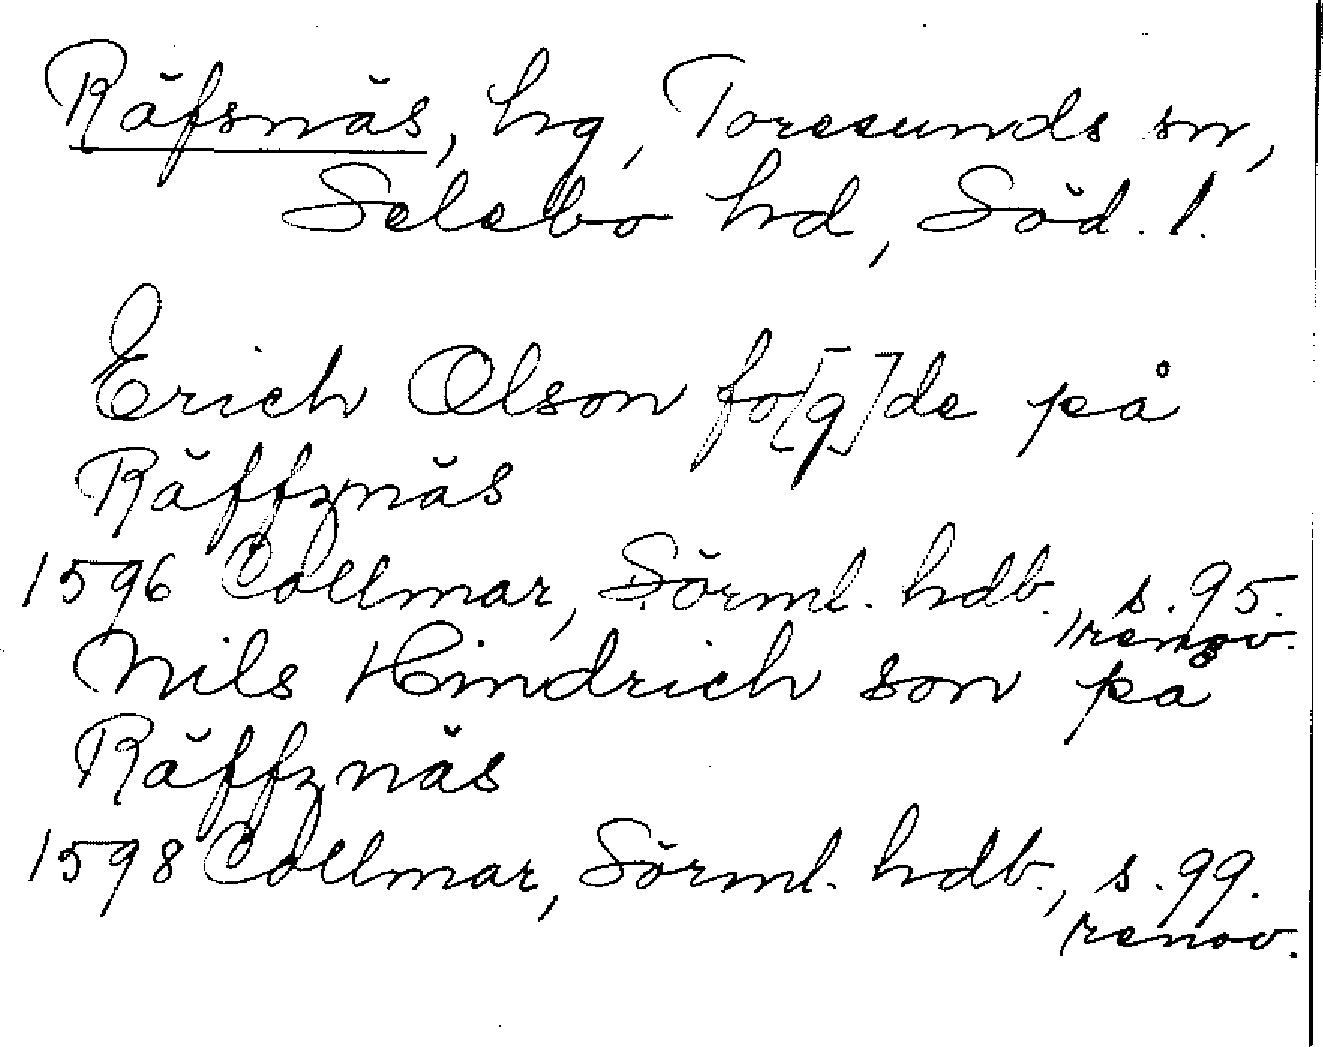 Räfsnäs, hg, Toresunds sn,
Selebo hd, Söd. l.
Erich Olson fo[g]de på
Räffznäs
1596 Collmar, Sörml. hdb., s. 95.
renov.
Nils Hindrich son på
Räffznäs
1598 Collmar, Sörml. hdb., s. 99.
renov.